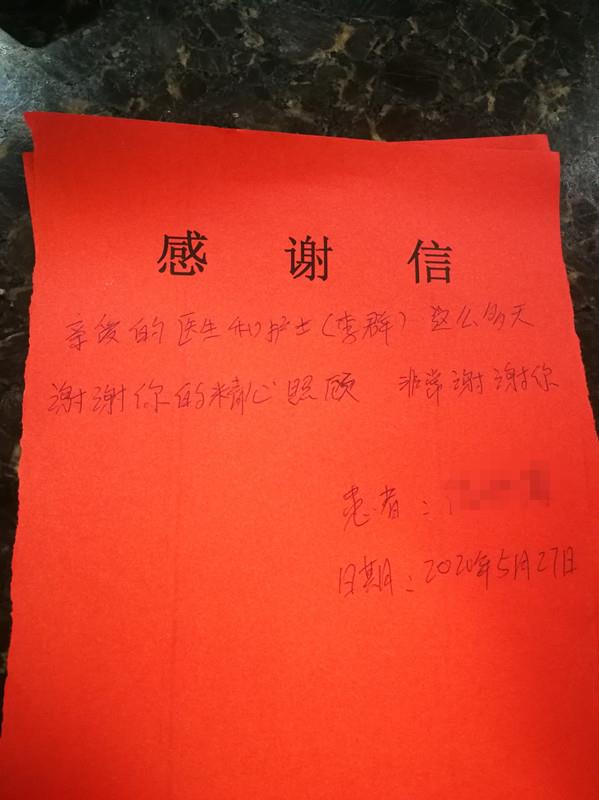 感谢信
亲爱的医生和护士（李群）这么多天
谢谢你的精心照顾 非常谢谢你
患者：
日期：2020年5月27日